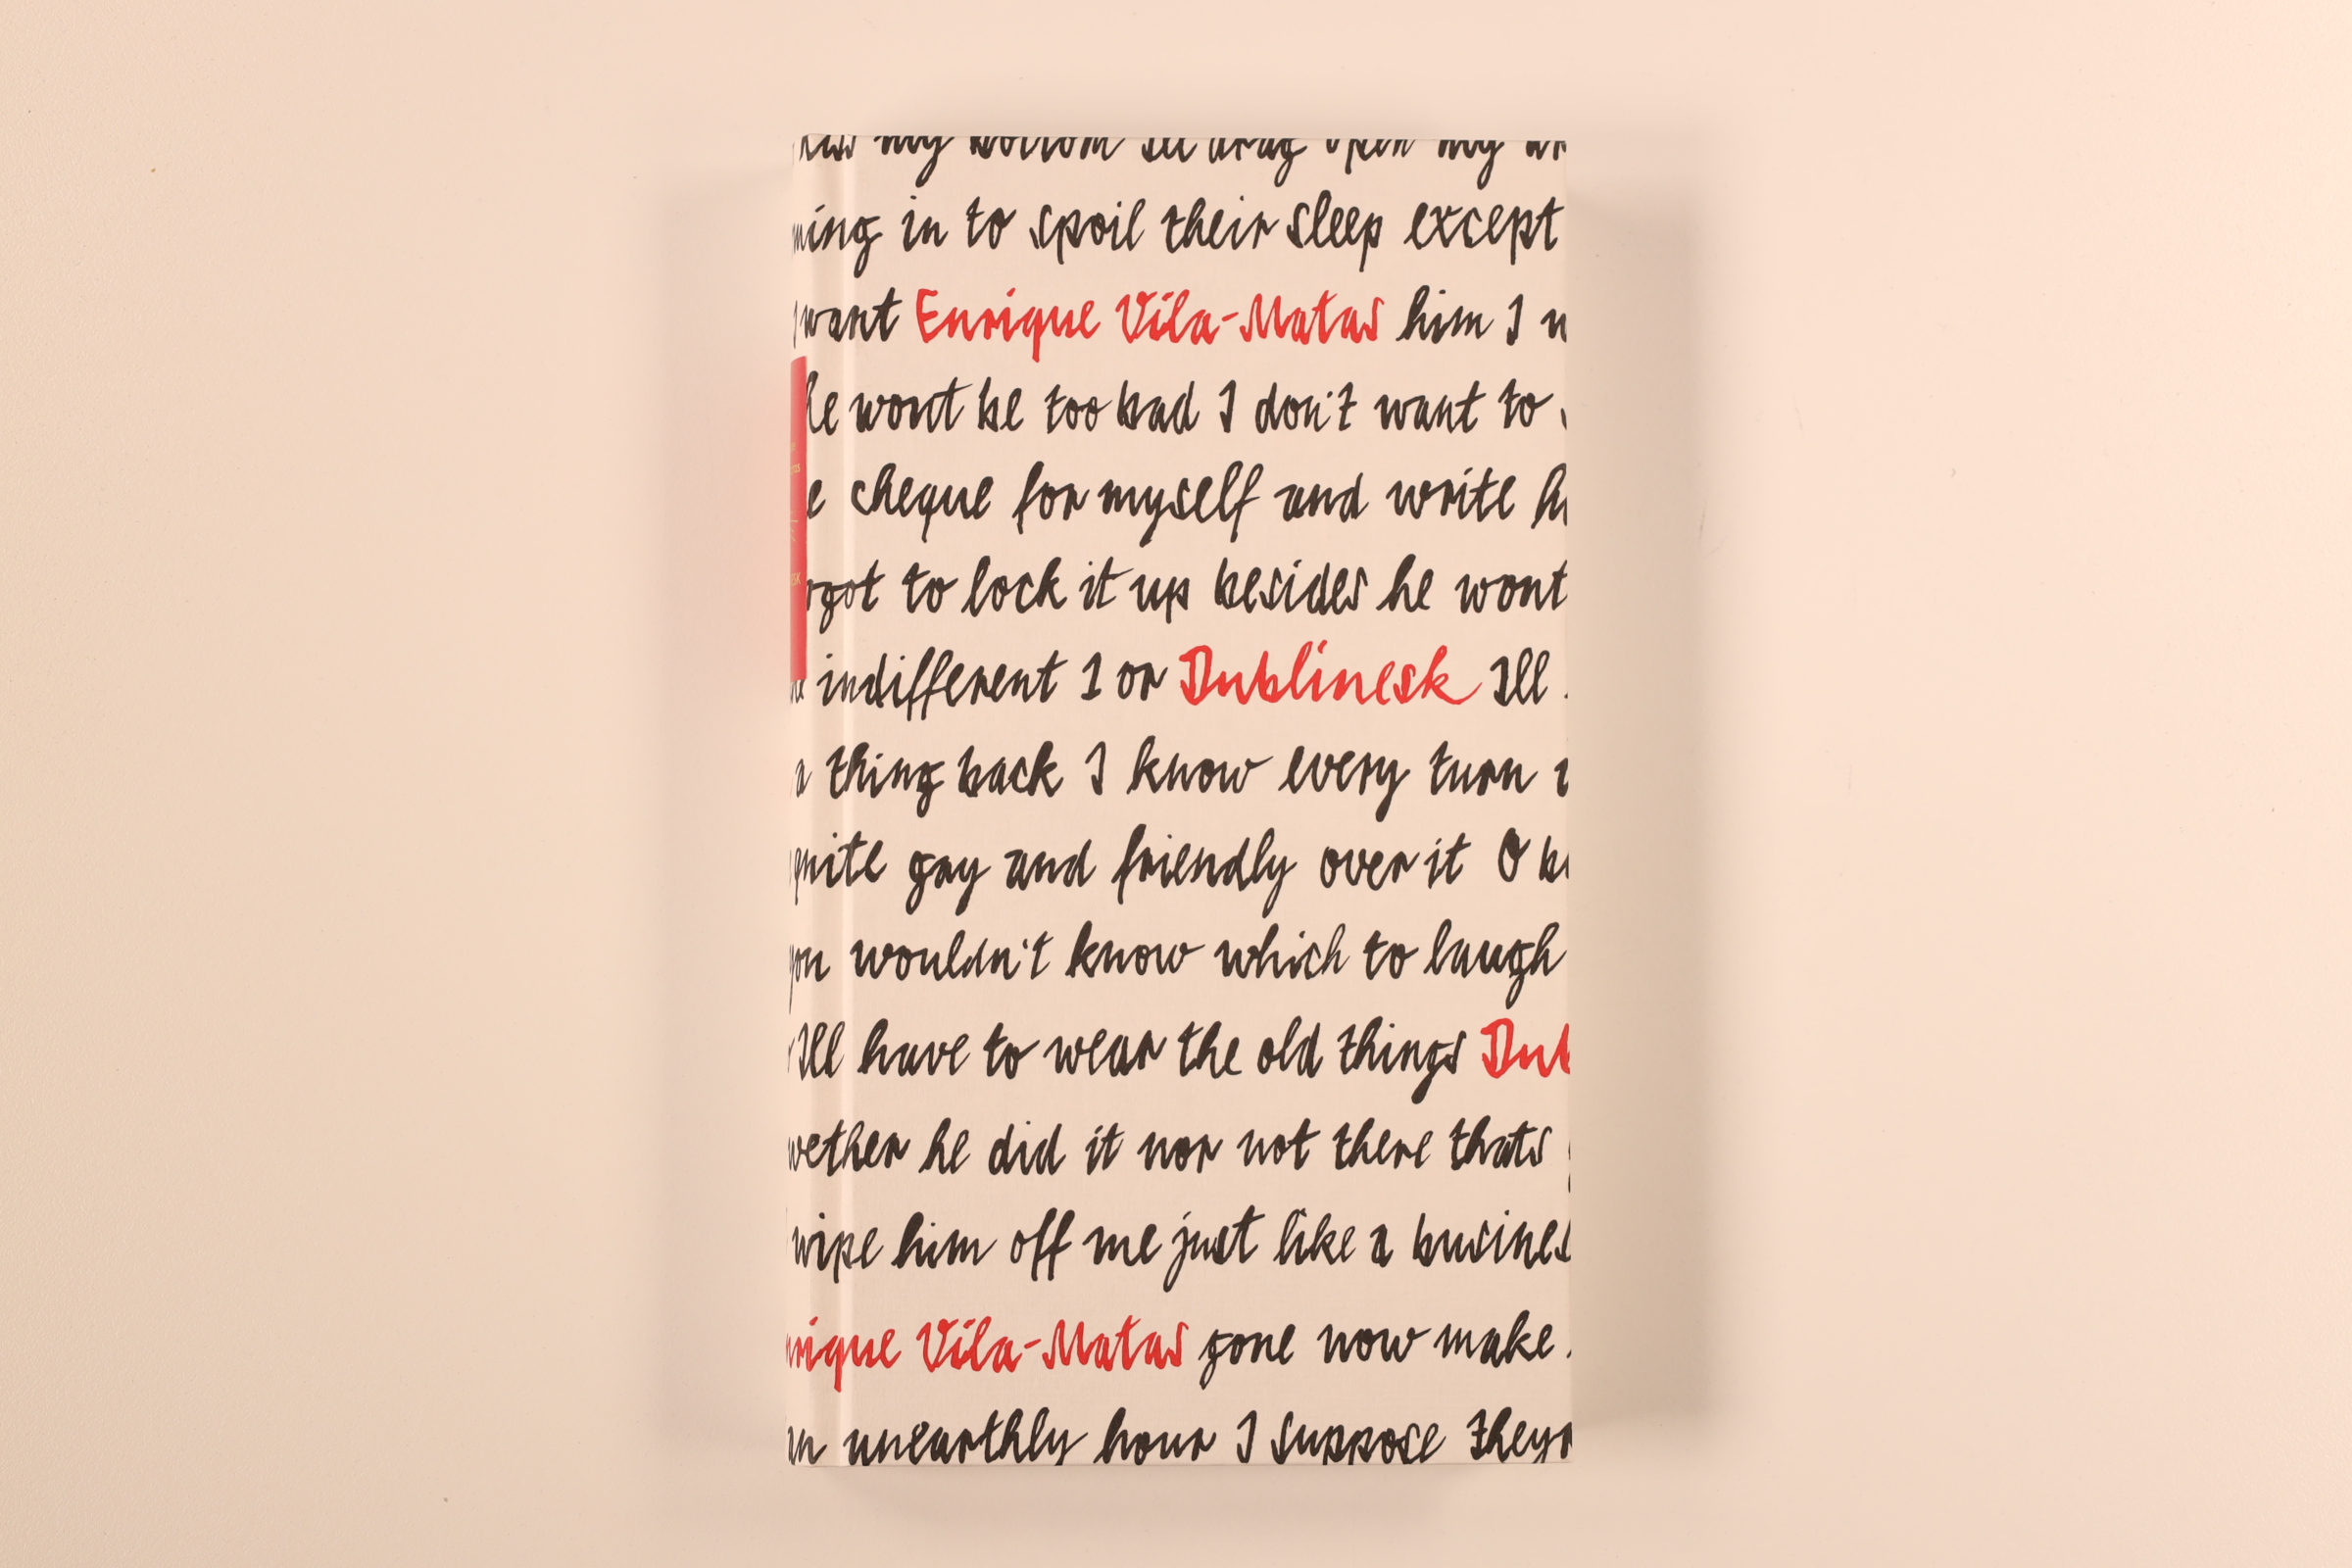 my bottom Ill drag open my
ing in to spoil their sleep except
want Enrique Vila-Matas him I
he wont be too bad I don't want to
cheque for myself and write
to lock it up besides he wont
indifferent 1 or Dublinesk Ill
a thing back I know every turn
quite gay and friendly over it O
you wouldn't know which to laugh
Ill have to wear the old things Dub
wether he did it nor not there thats
wipe him off me just like a busines
nrique Vila-Matas gone now make
an unearthly hour I suppose theyr